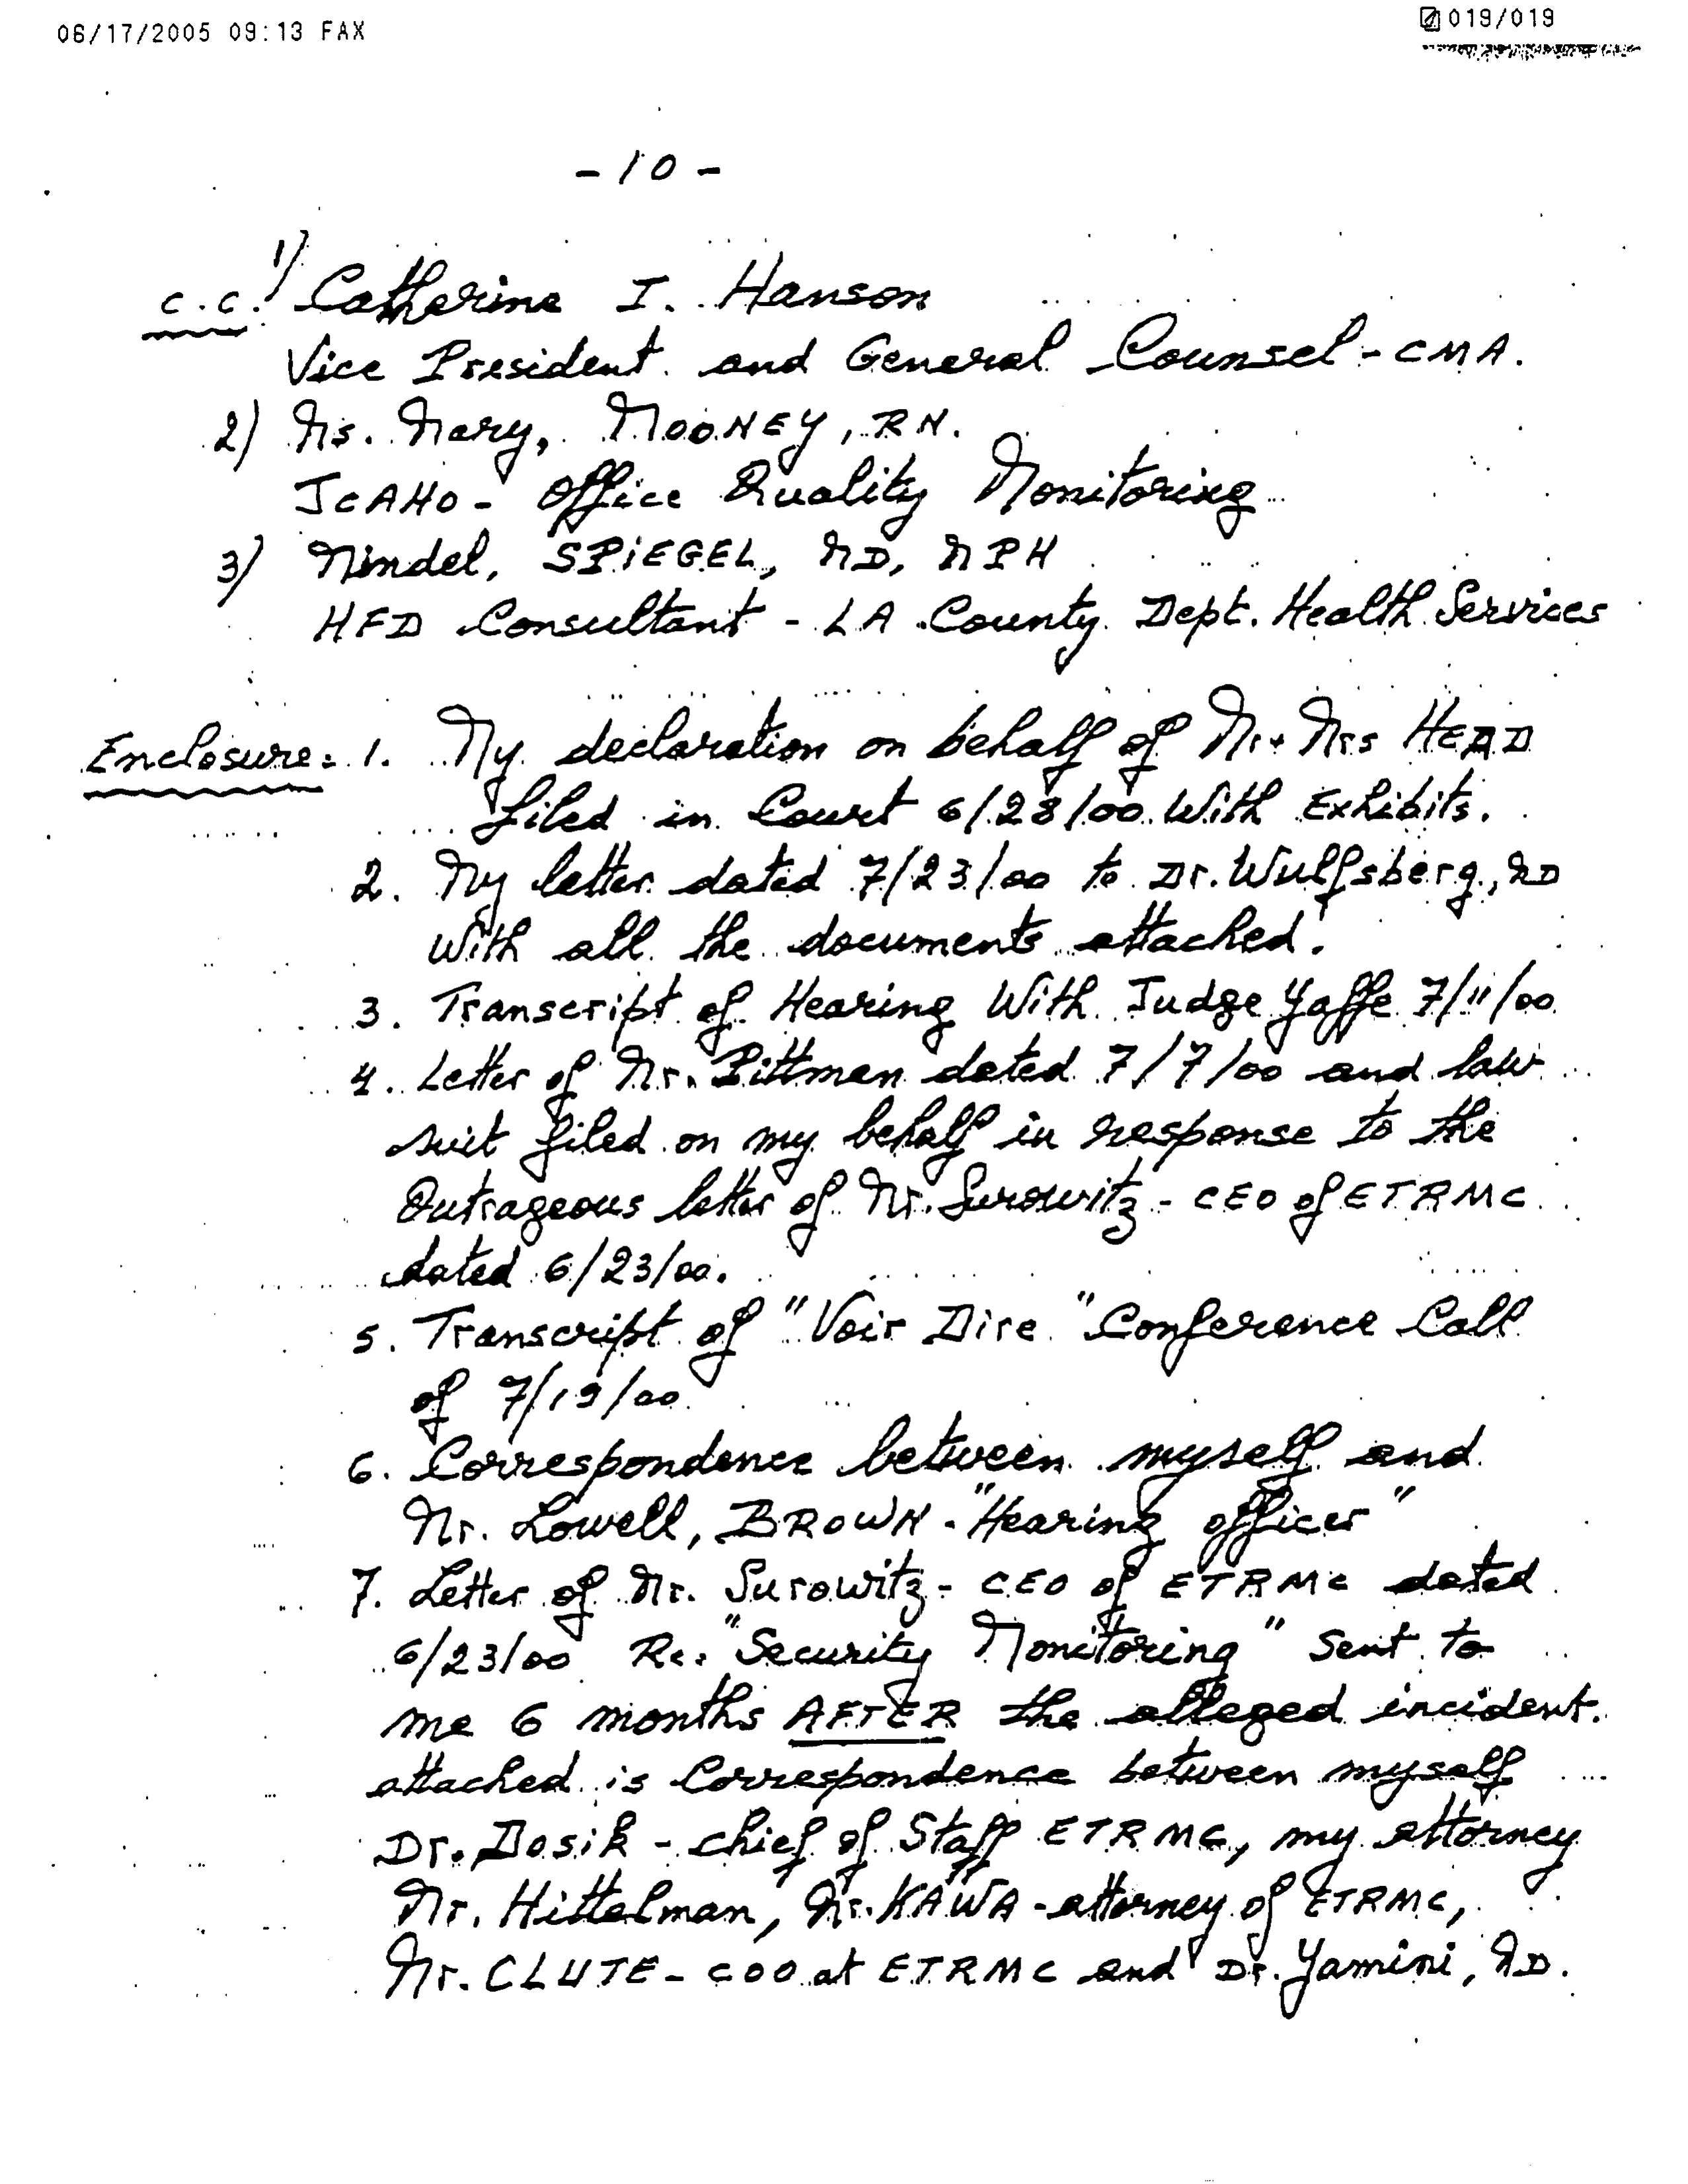 06/17/2005 09:13 FAX
019/019
- 10 -
c.c: 1) Catherine I. Hanson
Vice President and General Counsel - CMA.
2) Ms. Mary, MOONEY, RN.
JCAHO - Office Quality Monitoring
3) Mindel, SPiEGEL, MD, MPH
HFD Consultant - LA County Dept. Health Services
Enclosure: 1. My declaration on behalf of Mr + Mrs HEAD
filed in Court 6/28/00 With Exhibits.
2. My letter dated 7/23/00 to Dr. Wulfsberg, MD
With all the documents attached.
3. Transcript of Hearing With Judge Yaffe 7/11/00
4. Letter of Mr. Pittman dated 7/7/00 and law
suit filed on my behalf in response to the
Outrageous letter of Mr. Surowitz - CEO of ETRMC
dated 6/23/00.
5. Transcript of "Voir Dire" Conference Call
of 7/19/00
6. Correspondence between myself and
Mr. Lowell, BROWN - "Hearing officer"
7. Letter of Mr. Surowitz - CEO of ETRMC dated
6/23/00 Re: "Security Monitoring" Sent to
me 6 months AFTER the alleged incident.
attached is Correspondence between myself
Dr. Dosik - chief of Staff ETRMC, my attorney
Mr. Hittelman, Mr. KAWA - attorney of ETRMC,
Mr. CLUTE - COO at ETRMC and Dr. Yamini, MD.